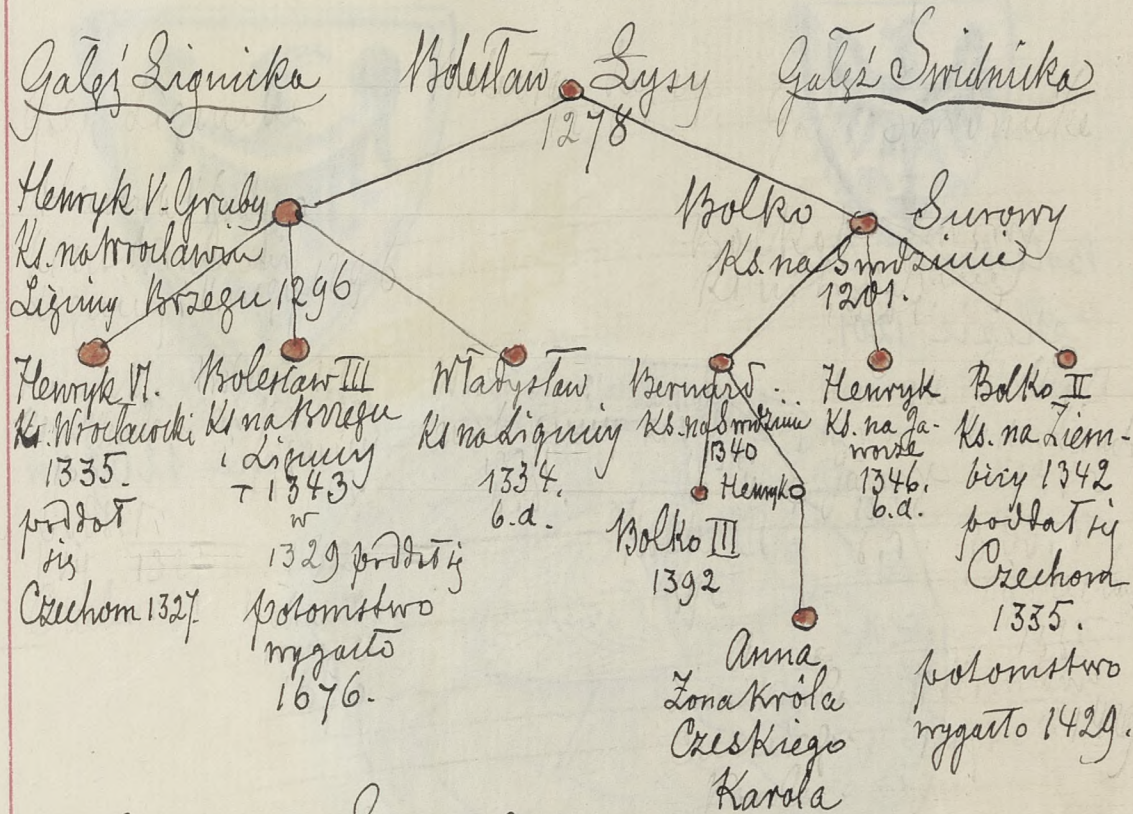 Gałęź Lignicka
Bolesław Łysy
1278
Gałęź Swidnicka
Henryk V. Gruby
Ks. na Wrocławiu
Lignicy Brzegu 1296
Bolko Surowy
Ks. na Swidnicie
1201.
Henryk VI.
Ks. Wrocławski
1335.
poddał
się
Czechom 1327.
Bolesław III
Ks na Brzegu
i Lignicy
† 1343
w
1329 poddał się
potomstwo
wygasło
1676.
Władysław
Ks na Lignicy
1334.
b.d.
Bernard
Ks. na Swidnicie
1340
Henryk
Bolko III
1392
Anna
Żona Króla
Czeskiego
Karola
Henryk
Ks. na Ja-
worze
1346.
b.d.
Bolko II
Ks. na Ziem-
bicy 1342
poddał się
Czechom
1335.
potomstwo
wygasło 1429.